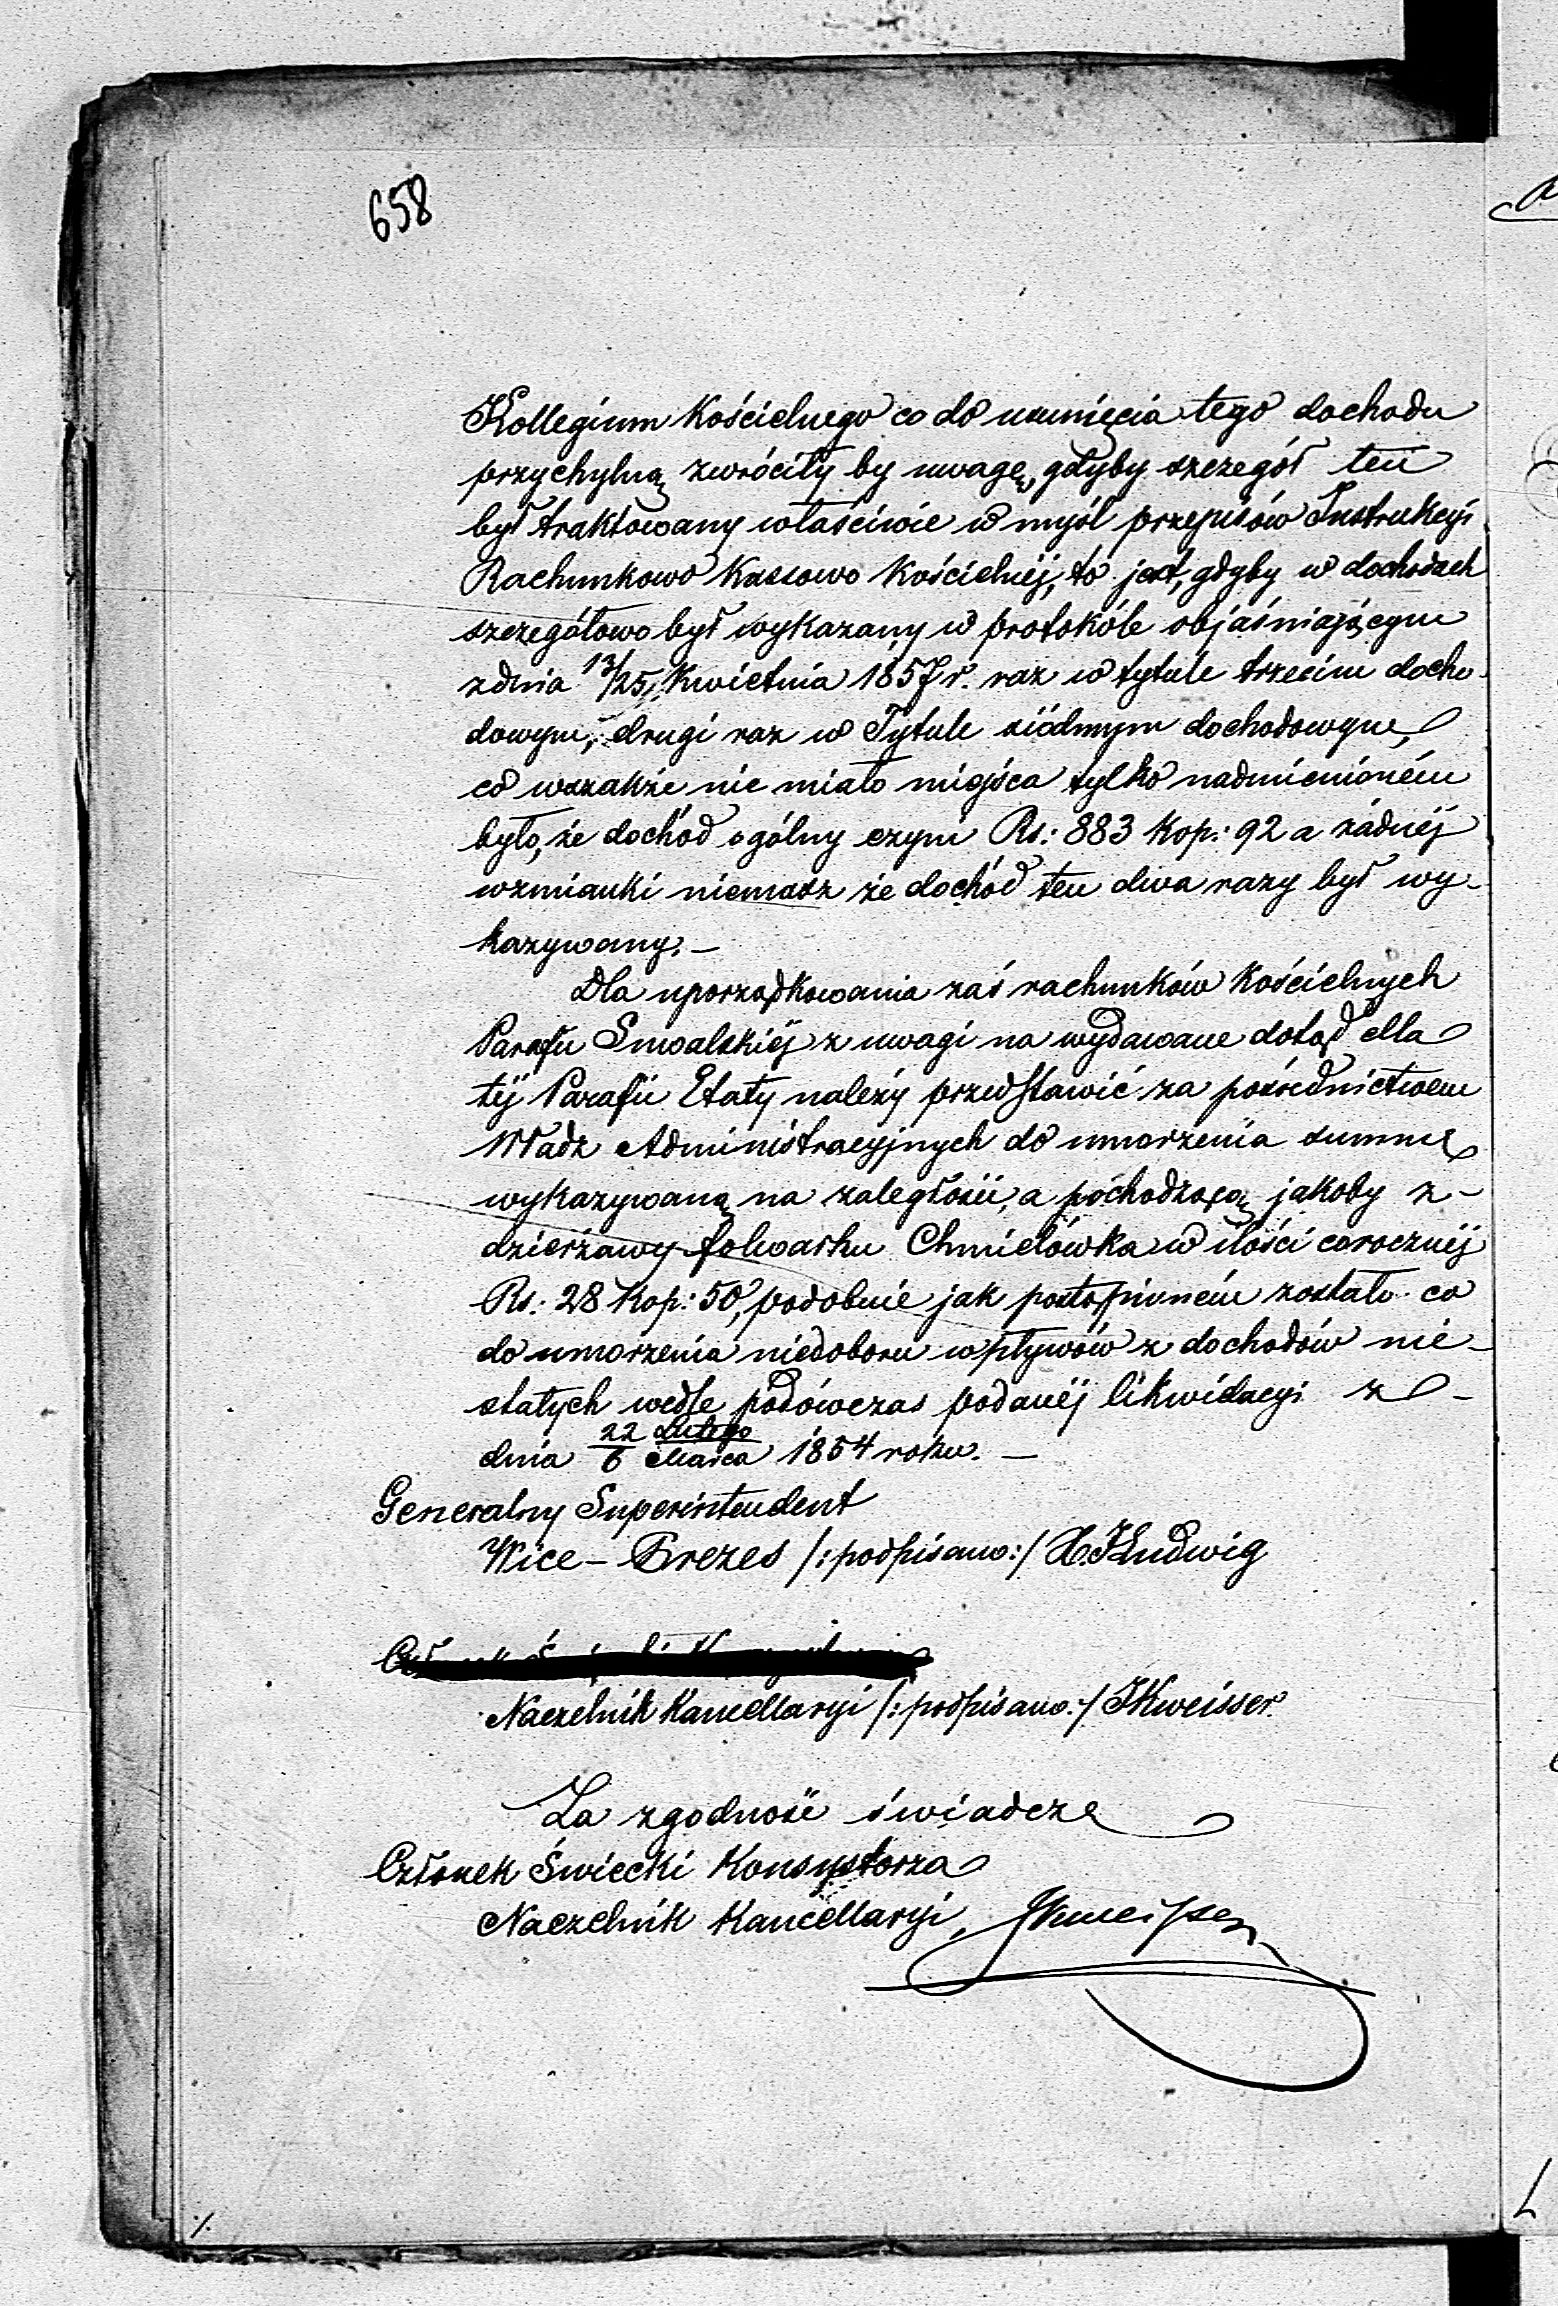 658
Kollegium Kościelnego co do usunięcia tego dochodu
przychylną zwróciły by uwagę, gdyby szczegół ten
był traktowany właściwie w myśl przepisów Instrukcyi
Rachunkowo Kassowo Kościelnéj, to jest, gdyby w dochodach
szczegółowo był wykazany w protokóle objaśniającym
z dnia 13/25 Kwietnia 1857 r. raz w tytule trzecim docho-
dowym, drugi raz w Tytule siódmym dochodowym,
co wszakże nie miało miejsca tylko nadmienioném
było, że dochód ogólny czyni Rs: 883 Kop: 92 a żadnéj
wzmianki niemasz że dochód ten dwa razy był wy-
kazywany. —
Dla uporządkowania zaś rachunków Kościelnych
Parafii Suwalskiéj z uwagi na wydawane dotąd dla
téj Parafii Etaty należy przedstawić za pośrednictwem
Władz Administracyjnych do umorzenia summę
wykazywaną na zaległości, a pochodzącą jakoby z-
dzierżawy folwarku Chmielówka w ilości corocznéj
Rs: 28 Kop: 50, podobnie jak postąpioném zostało co
do umorzenia niedoboru wpływów z dochodów nie-
stałych wedle podówczas podanéj likwidacyi z -
dnia 22 Lutego / 6 Marca 1854 roku. —
Generalny Superintendent
Wice - Prezes /:podpisano:/ Ludwig
Naczelnik Kancellaryi /:podpisano:/ JKweisser
Za zgodność świadczę
Członek Świecki Konsystorza
Naczelnik Kancellaryi, JKweisser